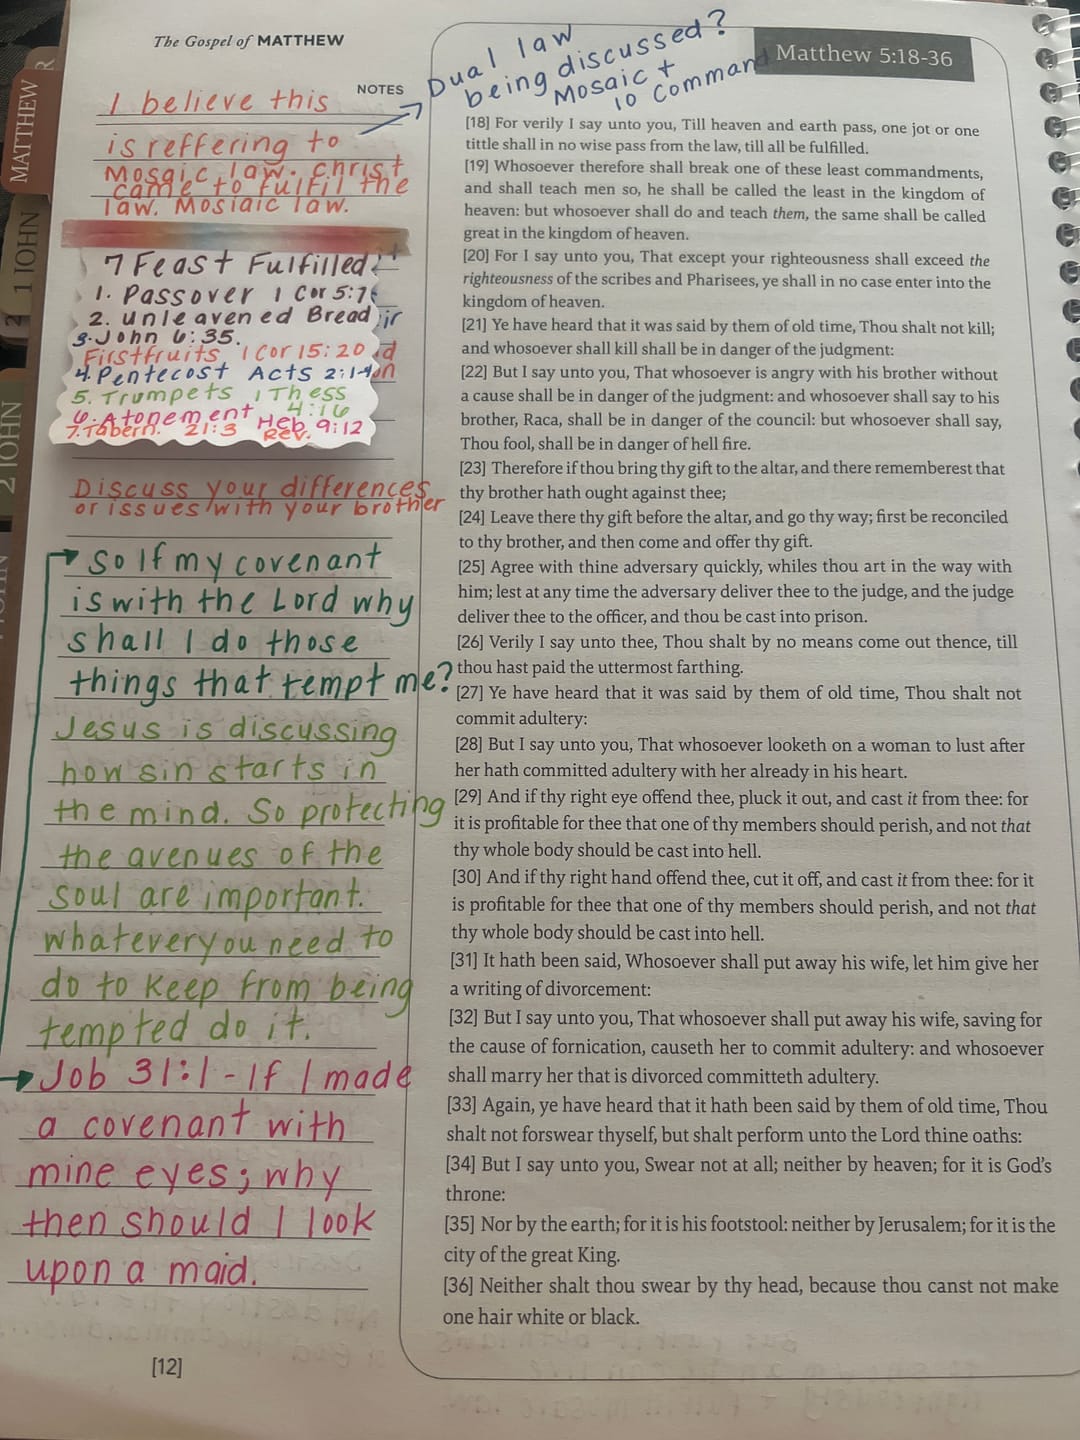 The Gospel of MATTHEW
Matthew 5:18-36
NOTES
Dual law
being discussed?
Mosaic +
10 Command
I believe this
is reffering to
Mosaic law. Christ
came to fulfil the
law. Mosiaic law.
7 Feast Fulfilled
1. Passover 1 Cor 5:7
2. unleavened Bread
3. John 6:35.
Firstfruits 1 Cor 15:20
4. Pentecost Acts 2:1-4
5. Trumpets 1 Thess
4:16
6. Atonement Heb. 9:12
7. Tabern. 21:3 Rev.
Discuss your differences
or issues with your brother
So If my covenant
is with the Lord why
shall I do those
things that tempt me?
Jesus is discussing
how sin starts in
the mind. So protecting
the avenues of the
soul are important.
whatever you need to
do to keep from being
tempted do it.
Job 31:1 - If I made
a covenant with
mine eyes; why
then should I look
upon a maid.
[12]
[18] For verily I say unto you, Till heaven and earth pass, one jot or one
tittle shall in no wise pass from the law, till all be fulfilled.
[19] Whosoever therefore shall break one of these least commandments,
and shall teach men so, he shall be called the least in the kingdom of
heaven: but whosoever shall do and teach them, the same shall be called
great in the kingdom of heaven.
[20] For I say unto you, That except your righteousness shall exceed the
righteousness of the scribes and Pharisees, ye shall in no case enter into the
kingdom of heaven.
[21] Ye have heard that it was said by them of old time, Thou shalt not kill;
and whosoever shall kill shall be in danger of the judgment:
[22] But I say unto you, That whosoever is angry with his brother without
a cause shall be in danger of the judgment: and whosoever shall say to his
brother, Raca, shall be in danger of the council: but whosoever shall say,
Thou fool, shall be in danger of hell fire.
[23] Therefore if thou bring thy gift to the altar, and there rememberest that
thy brother hath ought against thee;
[24] Leave there thy gift before the altar, and go thy way; first be reconciled
to thy brother, and then come and offer thy gift.
[25] Agree with thine adversary quickly, whiles thou art in the way with
him; lest at any time the adversary deliver thee to the judge, and the judge
deliver thee to the officer, and thou be cast into prison.
[26] Verily I say unto thee, Thou shalt by no means come out thence, till
thou hast paid the uttermost farthing.
[27] Ye have heard that it was said by them of old time, Thou shalt not
commit adultery:
[28] But I say unto you, That whosoever looketh on a woman to lust after
her hath committed adultery with her already in his heart.
[29] And if thy right eye offend thee, pluck it out, and cast it from thee: for
it is profitable for thee that one of thy members should perish, and not that
thy whole body should be cast into hell.
[30] And if thy right hand offend thee, cut it off, and cast it from thee: for it
is profitable for thee that one of thy members should perish, and not that
thy whole body should be cast into hell.
[31] It hath been said, Whosoever shall put away his wife, let him give her
a writing of divorcement:
[32] But I say unto you, That whosoever shall put away his wife, saving for
the cause of fornication, causeth her to commit adultery: and whosoever
shall marry her that is divorced committeth adultery.
[33] Again, ye have heard that it hath been said by them of old time, Thou
shalt not forswear thyself, but shalt perform unto the Lord thine oaths:
[34] But I say unto you, Swear not at all; neither by heaven; for it is God's
throne:
[35] Nor by the earth; for it is his footstool: neither by Jerusalem; for it is the
city of the great King.
[36] Neither shalt thou swear by thy head, because thou canst not make
one hair white or black.
MATTHEW
1 JOHN
2 JOHN